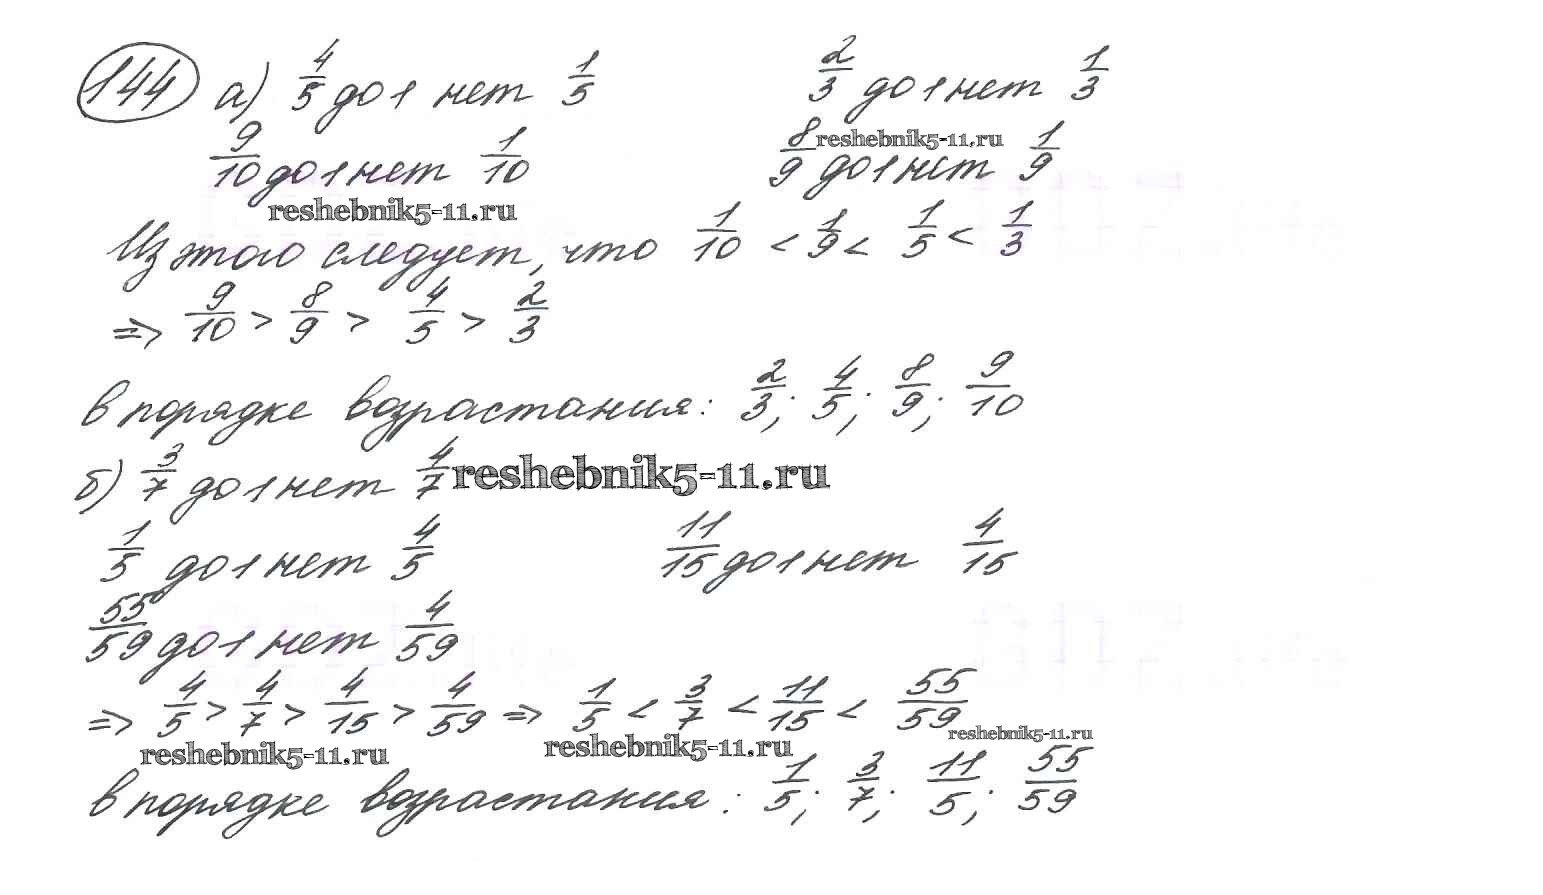 144 а) 4/5 до 1 нет 1/5 2/3 до 1 нет 1/3
9/10 до 1 нет 1/10 8/9 до 1 нет 1/9
reshebnik5-11.ru
reshebnik5-11.ru
Из этого следует, что 1/10 < 1/9 < 1/5 < 1/3
=> 9/10 > 8/9 > 4/5 > 2/3
в порядке возрастания: 2/3; 4/5; 8/9; 9/10
б) 3/7 до 1 нет 4/7 reshebnik5-11.ru
1/5 до 1 нет 4/5 11/15 до 1 нет 4/15
55/59 до 1 нет 4/59
=> 4/5 > 4/7 > 4/15 > 4/59 => 1/5 < 3/7 < 11/15 < 55/59
reshebnik5-11.ru reshebnik5-11.ru reshebnik5-11.ru
в порядке возрастания: 1/5; 3/7; 11/5; 55/59